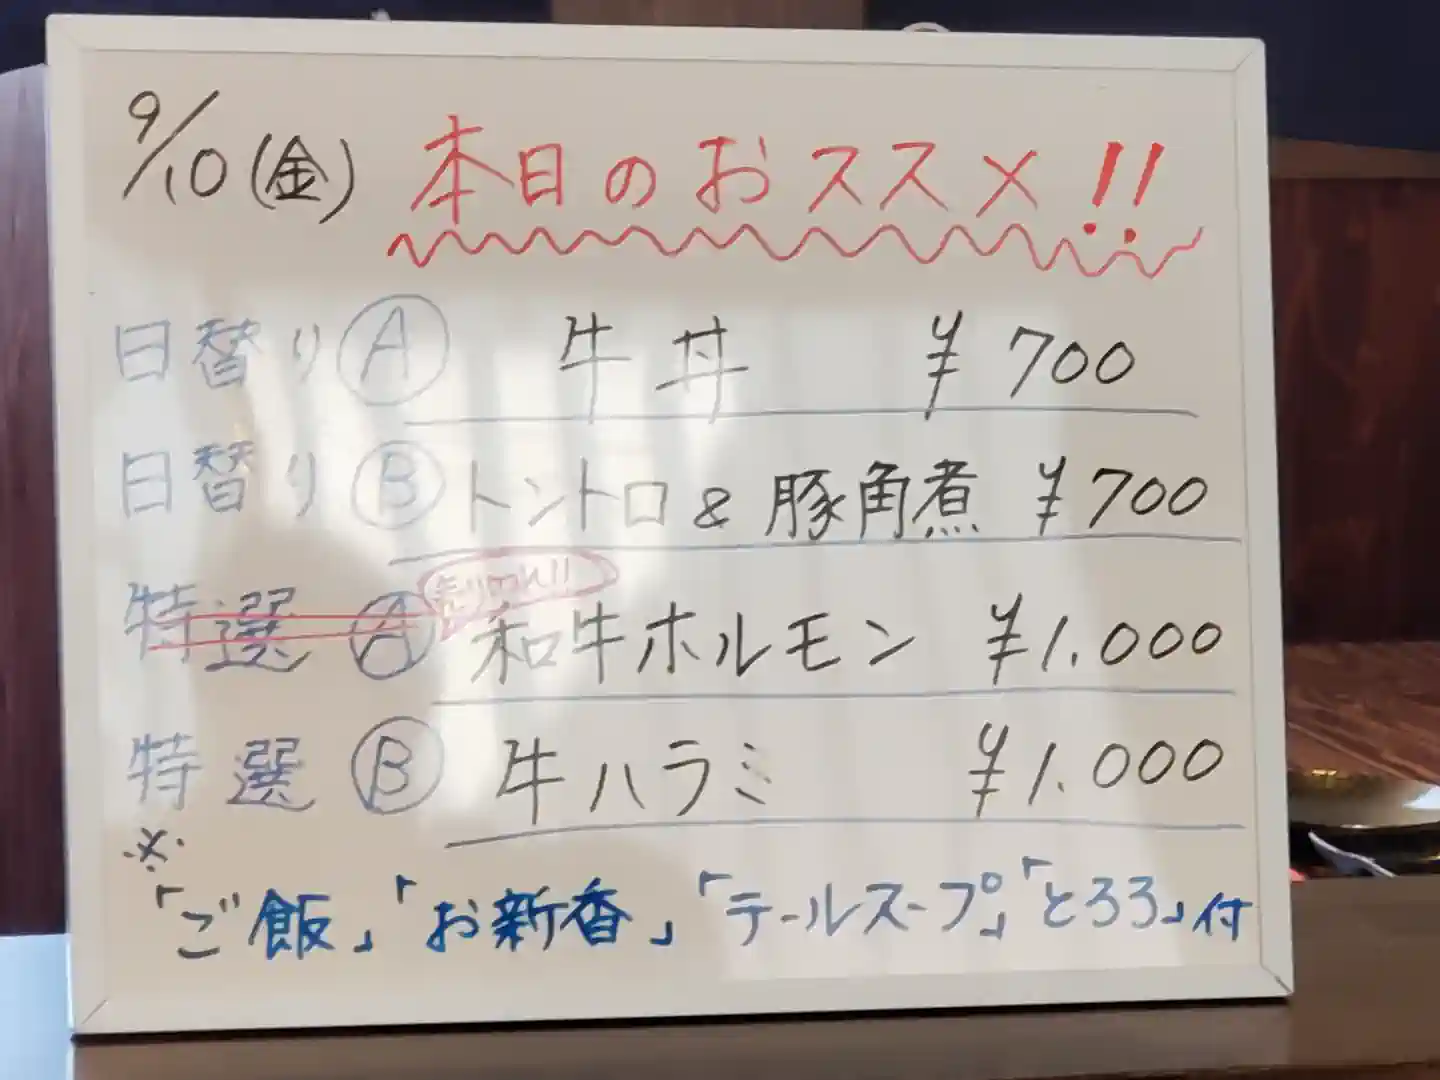 9/10(金) 本日のおススメ!!
日替りⒶ 牛丼 ¥700
日替りⒷ トントロ&豚角煮 ¥700
売り切れ!!
特選Ⓐ 和牛ホルモン ¥1.000
特選Ⓑ 牛ハラミ ¥1.000
※
「ご飯」「お新香」「テールスープ」「とろろ」付